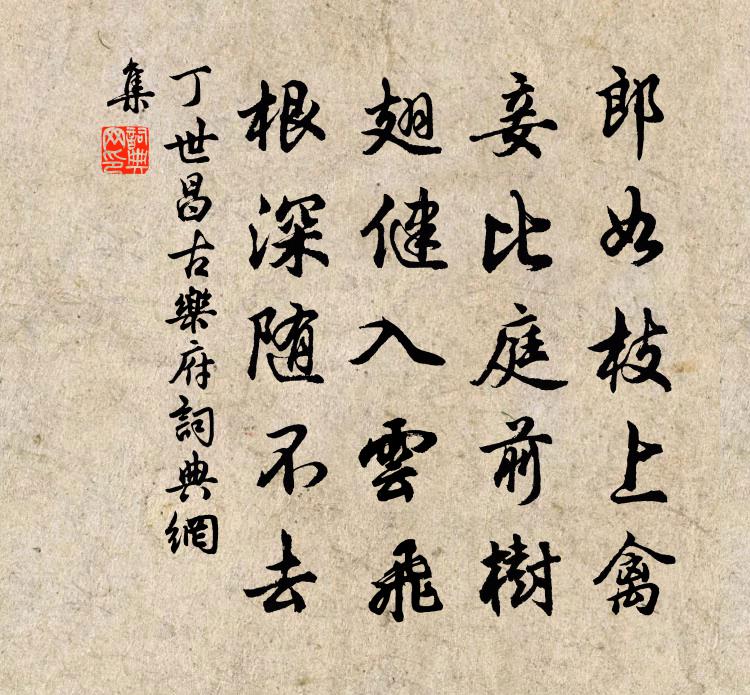 郎如枝上禽
妾比庭前樹
翅健入雲飛
根深随不去
丁世昌古樂府詞典網
集
詞典
网印